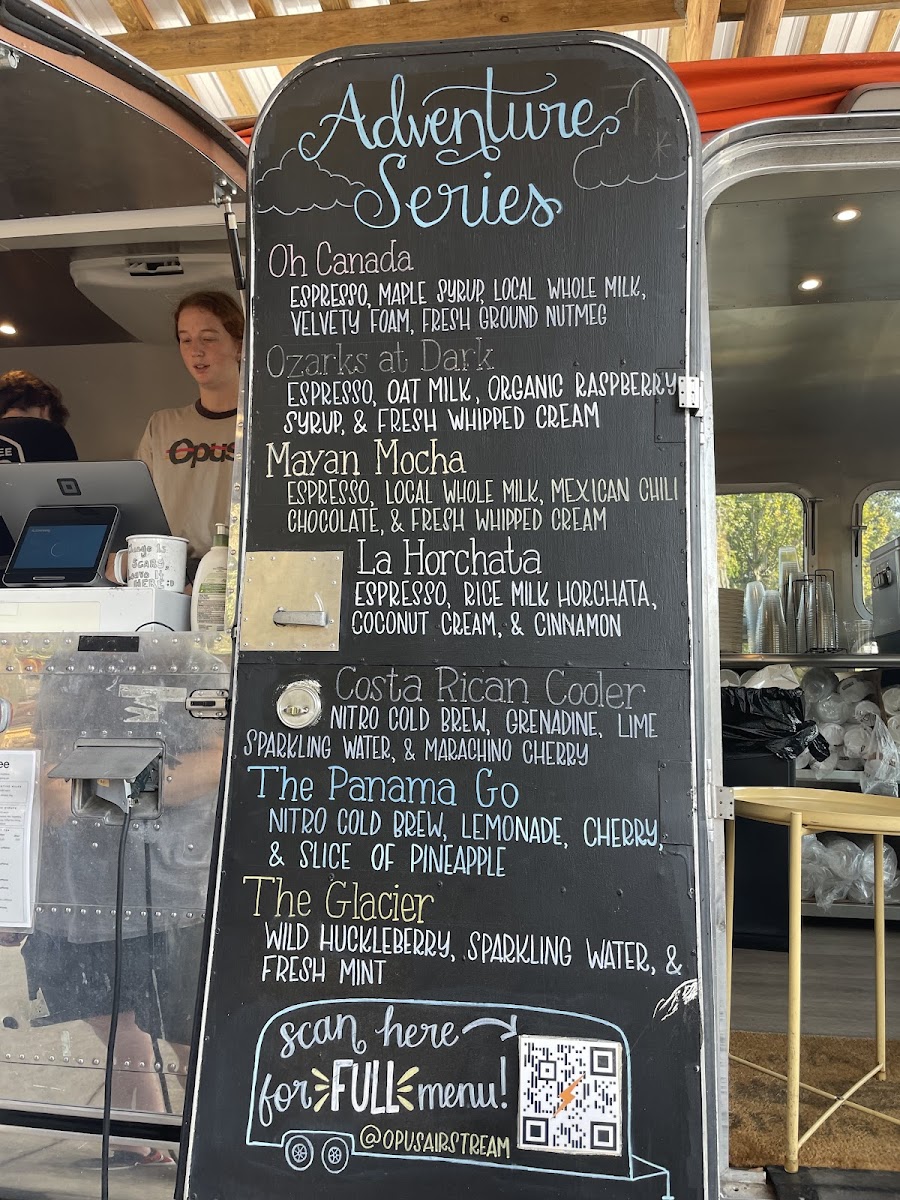 Adventure
Series
Oh Canada
ESPRESSO, MAPLE SYRUP, LOCAL WHOLE MILK,
VELVETY FOAM, FRESH GROUND NUTMEG
Ozarks at Dark
ESPRESSO, OAT MILK, ORGANIC RASPBERRY
SYRUP, & FRESH WHIPPED CREAM
Mayan Mocha
ESPRESSO, LOCAL WHOLE MILK, MEXICAN CHILI
CHOCOLATE, & FRESH WHIPPED CREAM
La Horchata
ESPRESSO, RICE MILK HORCHATA,
COCONUT CREAM, & CINNAMON
Costa Rican Cooler
NITRO COLD BREW, GRENADINE, LIME
SPARKLING WATER, & MARACHINO CHERRY
The Panama Go
NITRO COLD BREW, LEMONADE, CHERRY,
& SLICE OF PINEAPPLE
The Glacier
WILD HUCKLEBERRY, SPARKLING WATER, &
FRESH MINT
scan here
for FULL menu!
@OPUSAIRSTREAM
Opus
Change is
SCARY,
leave it
HERE :D